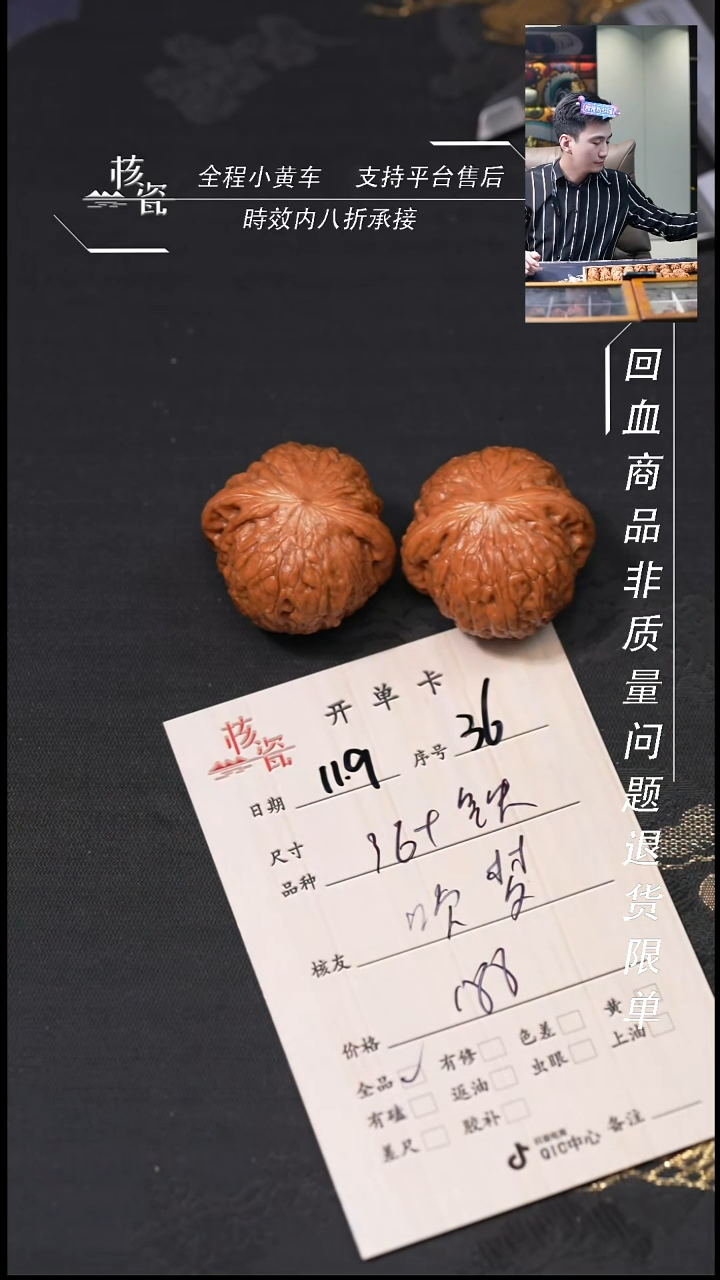 核瓷
全程小黄车 支持平台售后
時效内八折承接
回血商品非质量问题退货限单
开单卡
核瓷
日期 11.9 序号 36
尺寸
品种 36+ 铁
吹梦
核友
188
价格
全品 ✓ 有修 色差 黄
有磕 返油 虫眼 上油
差尺 胶补
抖音电商
QIC中心 备注